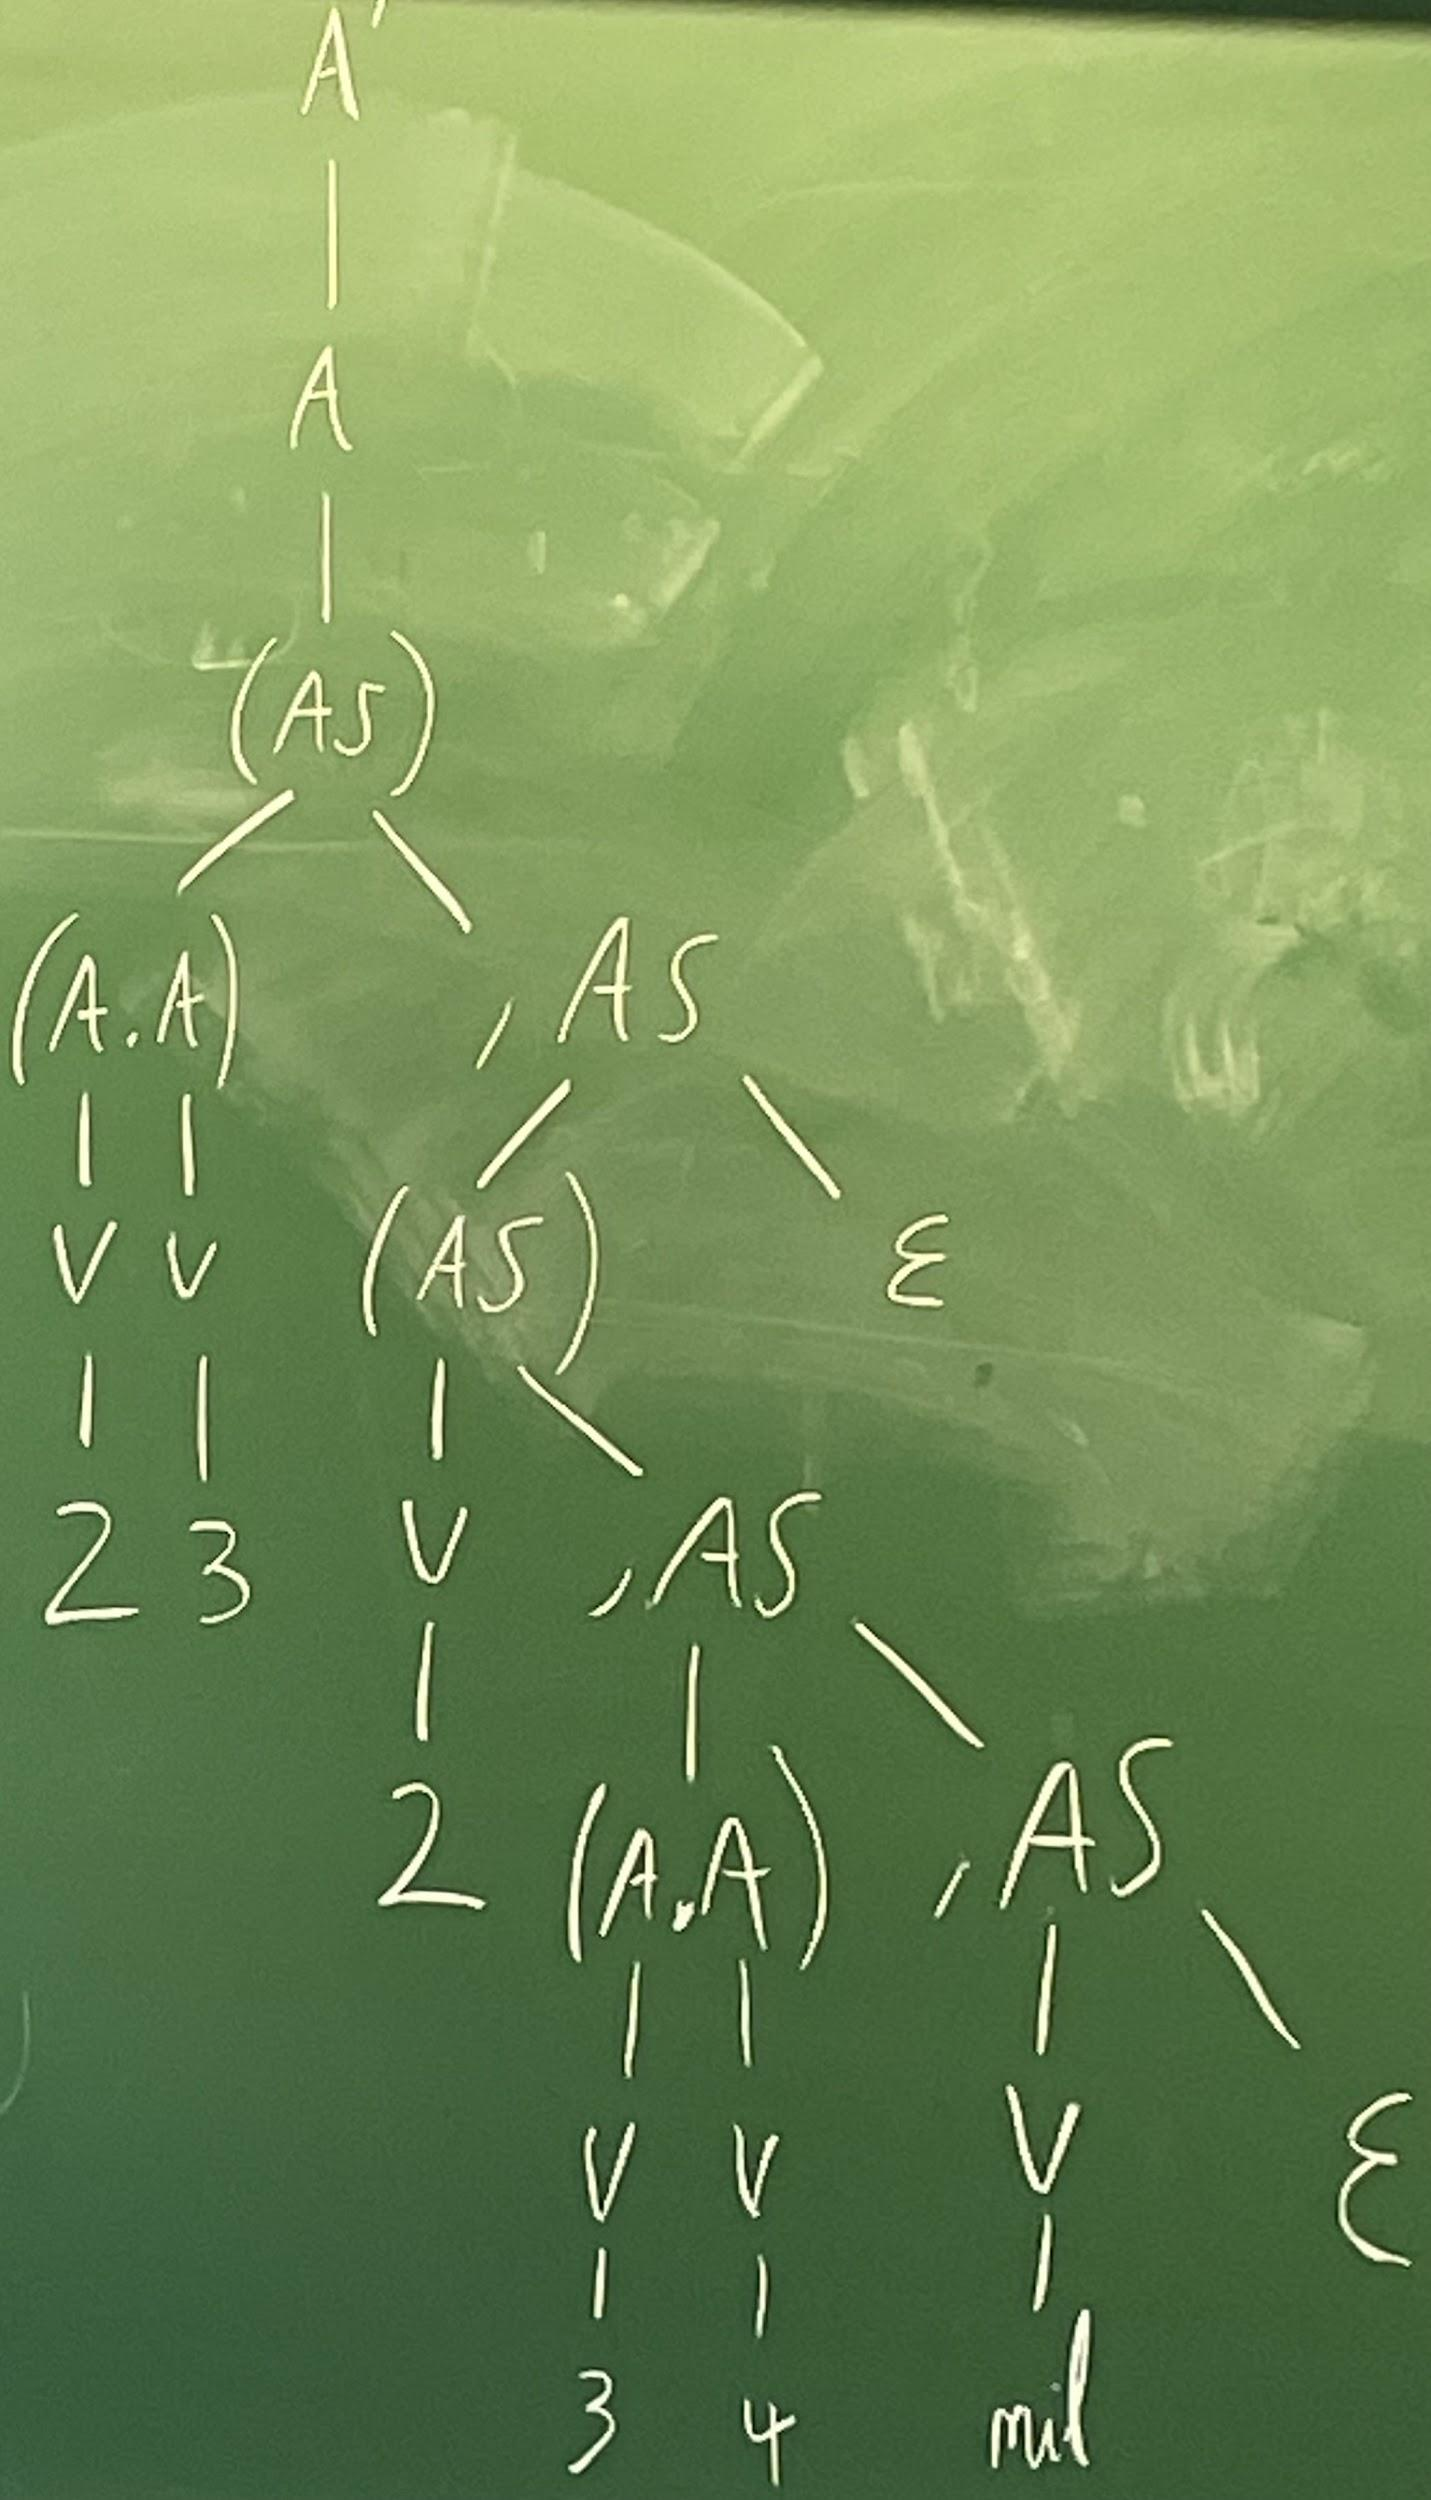 A'
A
(AS)
(A.A) , AS
V V (AS) ε
2 3 V , AS
2 (A.A) , AS
V V V ε
3 4 nil